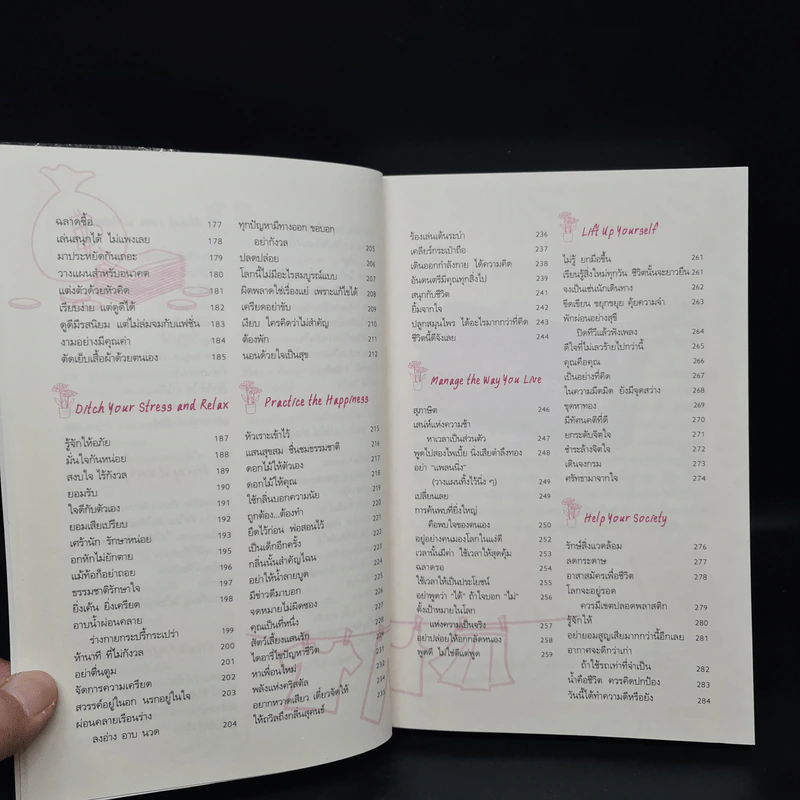 ฉลาดซื้อ 177
เล่นสนุกได้ ไม่แพงเลย 178
มาประหยัดกันเถอะ 179
วางแผนสำหรับอนาคต 180
แต่งตัวด้วยหัวคิด 181
เรียบง่าย แต่ดูดีได้ 182
ดูดีมีรสนิยม แต่ไม่ล่มจมกับแฟชั่น 183
งามอย่างมีคุณค่า 184
ตัดเย็บเสื้อผ้าด้วยตนเอง 185
Ditch Your Stress and Relax
รู้จักให้อภัย 187
มั่นใจกันหน่อย 188
สงบใจ ไร้กังวล 189
ยอมรับ 190
ใจดีกับตัวเอง 191
ยอมเสียเปรียบ 192
เศร้านัก รักษาหน่อย 193
อกหักไม่ยักตาย 195
แม้ท้อก็อย่าถอย 196
ธรรมชาติรักษาใจ 197
ยิ่งเค้น ยิ่งเครียด 198
อาบน้ำผ่อนคลาย
ร่างกายกระปรี้กระเปร่า 199
ห้านาที ที่ไม่กังวล 200
อย่าตื่นตูม 201
จัดการความเครียด 202
สวรรค์อยู่ในอก นรกอยู่ในใจ 203
ผ่อนคลายเรือนร่าง
ลงอ่าง อาบ นวด 204
ทุกปัญหามีทางออก ขอบอก
อย่ากังวล 205
ปลดปล่อย 206
โลกนี้ไม่มีอะไรสมบูรณ์แบบ 207
ผิดพลาดใช่เรื่องแย่ เพราะแก้ไขได้ 208
เครียดอย่าขับ 209
เงียบ ใครคิดว่าไม่สำคัญ 210
ต้องพัก 211
นอนด้วยใจเป็นสุข 212
Practice the Happiness
หัวเราะเข้าไว้ 215
แสนสุขสม ชื่นชมธรรมชาติ 216
ดอกไม้ให้ตัวเอง 217
ดอกไม้ให้คุณ 218
ใช้กลิ่นบอกความนัย 219
ถูกต้อง...ต้องทำ 220
ยืดไว้ก่อน พ่อสอนไว้ 221
เป็นเด็กอีกครั้ง 222
กลิ่นนั้นสำคัญไฉน 223
อย่าให้น้ำลายบูด 224
มีข่าวดีมาบอก 225
จดหมายไม่ผิดซอง 226
คุณเป็นที่หนึ่ง 227
สัตว์เลี้ยงแสนรัก 228
ไดอารี่ไขปัญหาชีวิต 229
หาเพื่อนใหม่ 231
พลังแห่งคริสตัล 232
อยากหวาดเสียว เดี๋ยวจัดให้ 234
ให้ถวิลถึงกลิ่นสุคนธ์ 235
ร้องเล่นเต้นระบำ 236
เคลียร์กระเป๋าถือ 237
เดินออกกำลังกาย ได้ความคิด 238
อันดนตรีมีคุณทุกสิ่งไป 239
สนุกกับชีวิต 241
ยิ้มจากใจ 242
ปลูกสมุนไพร ได้อะไรมากกว่าที่คิด 243
ชีวิตนี้ดีจังเลย 244
Manage the Way You Live
สุภาษิต 246
เสน่ห์แห่งความช้า
หาเวลาเป็นส่วนตัว 247
พูดไปสองไพเบี้ย นิ่งเสียตำลึงทอง 248
อย่า "แพลนนิ่ง"
(วางแผนทิ้งไว้นิ่ง ๆ) 249
เปลี่ยนแลย 249
การค้นพบที่ยิ่งใหญ่
คือพบใจของตนเอง 250
อยู่อย่างคนมองโลกในแง่ดี 252
เวลานั้นมีค่า ใช้เวลาให้สุดคุ้ม 253
ฉลาดรอ 254
ใช้เวลาให้เป็นประโยชน์ 255
อย่าพูดว่า "ได้" ถ้าใจบอก "ไม่" 256
ตั้งเป้าหมายในโลก
แห่งความเป็นจริง 257
อย่าปล่อยให้อกกลัดหนอง 258
พูดดี ไม่ใช่ดีแต่พูด 259
Lift Up Yourself
ไม่รู้ ยกมือขึ้น 261
เรียนรู้สิ่งใหม่ทุกวัน ชีวิตนั้นจะยาวยืน 261
จงเป็นเช่นนักเดินทาง 262
ขีดเขียน ขยุกขยุย คุ้ยความจำ 263
พักผ่อนอย่างสุขี
ปิดทีวีแล้วฟังเพลง 264
ดีใจที่ไม่เลวร้ายไปกว่านี้ 265
คุณคือคุณ 266
เป็นอย่างที่คิด 267
ในความมืดมิด ยังมีจุดสว่าง 268
ขุดหาทอง 269
มีทัศนคติที่ดี 270
ยกระดับจิตใจ 271
ชำระล้างจิตใจ 272
เดินจงกรม 273
ศรัทธามาจากใจ 274
Help Your Society
รักษ์สิ่งแวดล้อม 276
ลดกระดาษ 277
อาสาสมัครเพื่อชีวิต 278
โลกจะอยู่รอด
ควรมีเขตปลอดพลาสติก 279
รู้จักให้ 280
อย่ายอมสูญเสียมากกว่านี้อีกเลย 281
อากาศจะดีกว่าเก่า
ถ้าใช้รถเท่าที่จำเป็น 282
น้ำคือชีวิต ควรคิดปกป้อง 283
วันนี้ได้ทำความดีหรือยัง 284